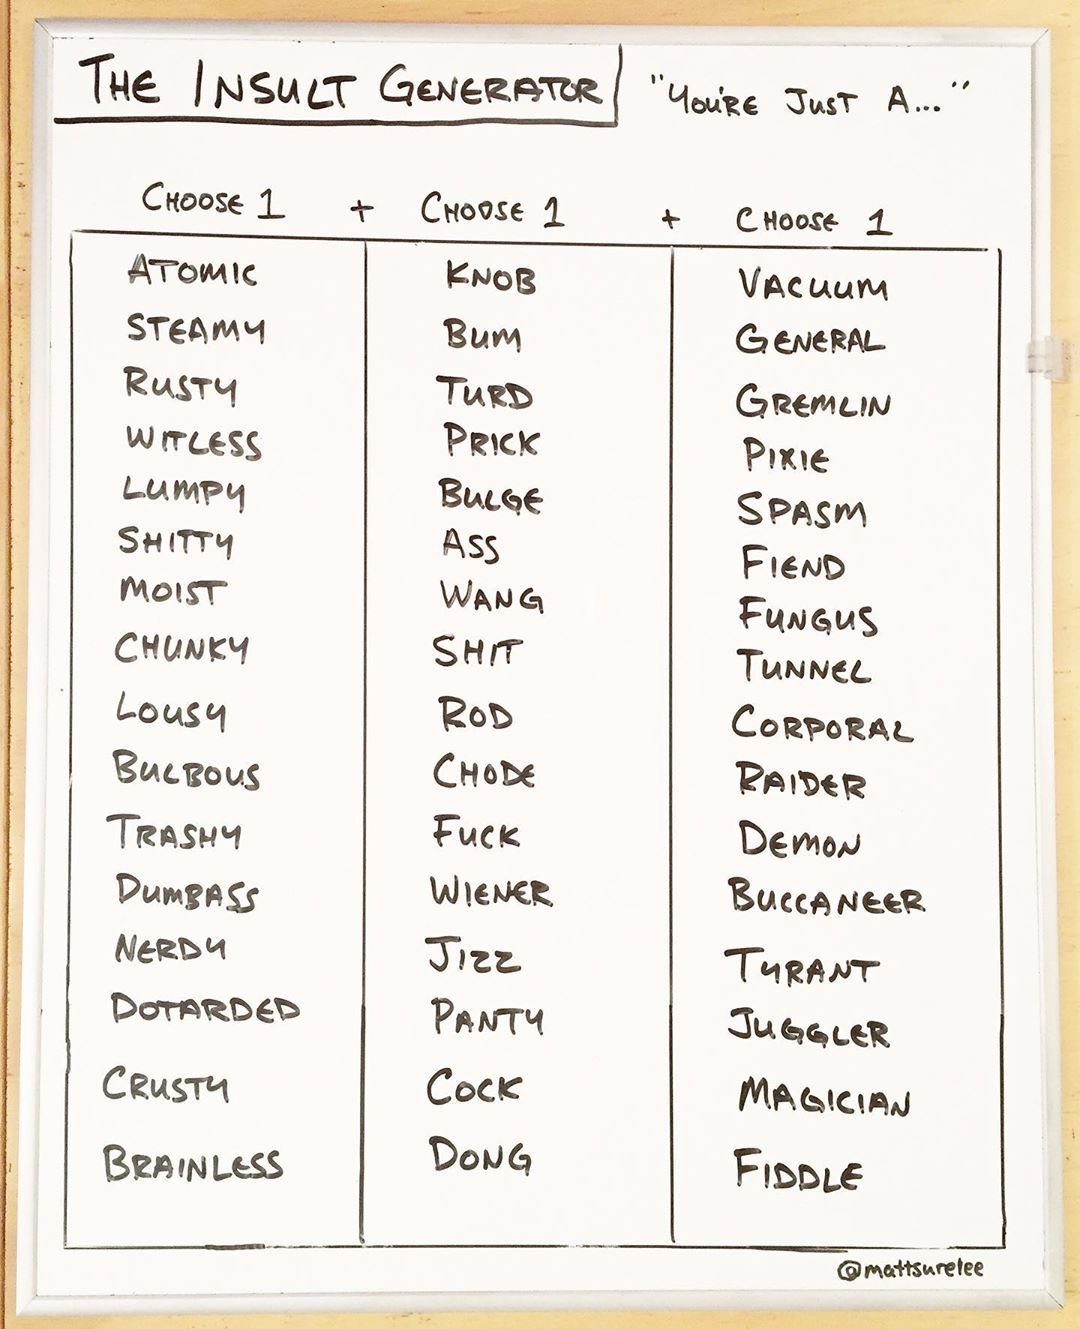 THE INSULT GENERATOR "YOU'RE JUST A..."
CHOOSE 1 + CHOOSE 1 + CHOOSE 1
ATOMIC KNOB VACUUM
STEAMY BUM GENERAL
RUSTY TURD GREMLIN
WITLESS PRICK PIXIE
LUMPY BULGE SPASM
SHITTY ASS FIEND
MOIST WANG FUNGUS
CHUNKY SHIT TUNNEL
LOUSY ROD CORPORAL
BULBOUS CHODE RAIDER
TRASHY FUCK DEMON
DUMBASS WIENER BUCCANEER
NERDY JIZZ TYRANT
DOTARDED PANTY JUGGLER
CRUSTY COCK MAGICIAN
BRAINLESS DONG FIDDLE
@mattsurelee